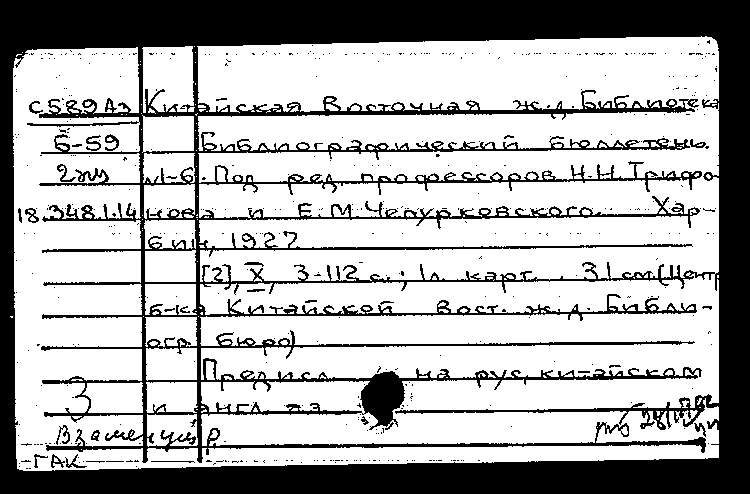 С589Аз Китайская Восточная ж.д. Библиотека
Б-59 Библиографический бюллетень.
2 экз №1-6. Под ред. профессоров Н.Н. Трифо-
18.348.1.14 нова и Е.М. Чепурковского. Хар-
бин, 1927
[2], X, 3-112 с.; 1л. карт. 31 см. (Центр.
б-ка Китайской Вост. ж.д. Библи-
огр. бюро)
Предисл на рус, китайском
3 и англ. яз.
Взамен
ГАК